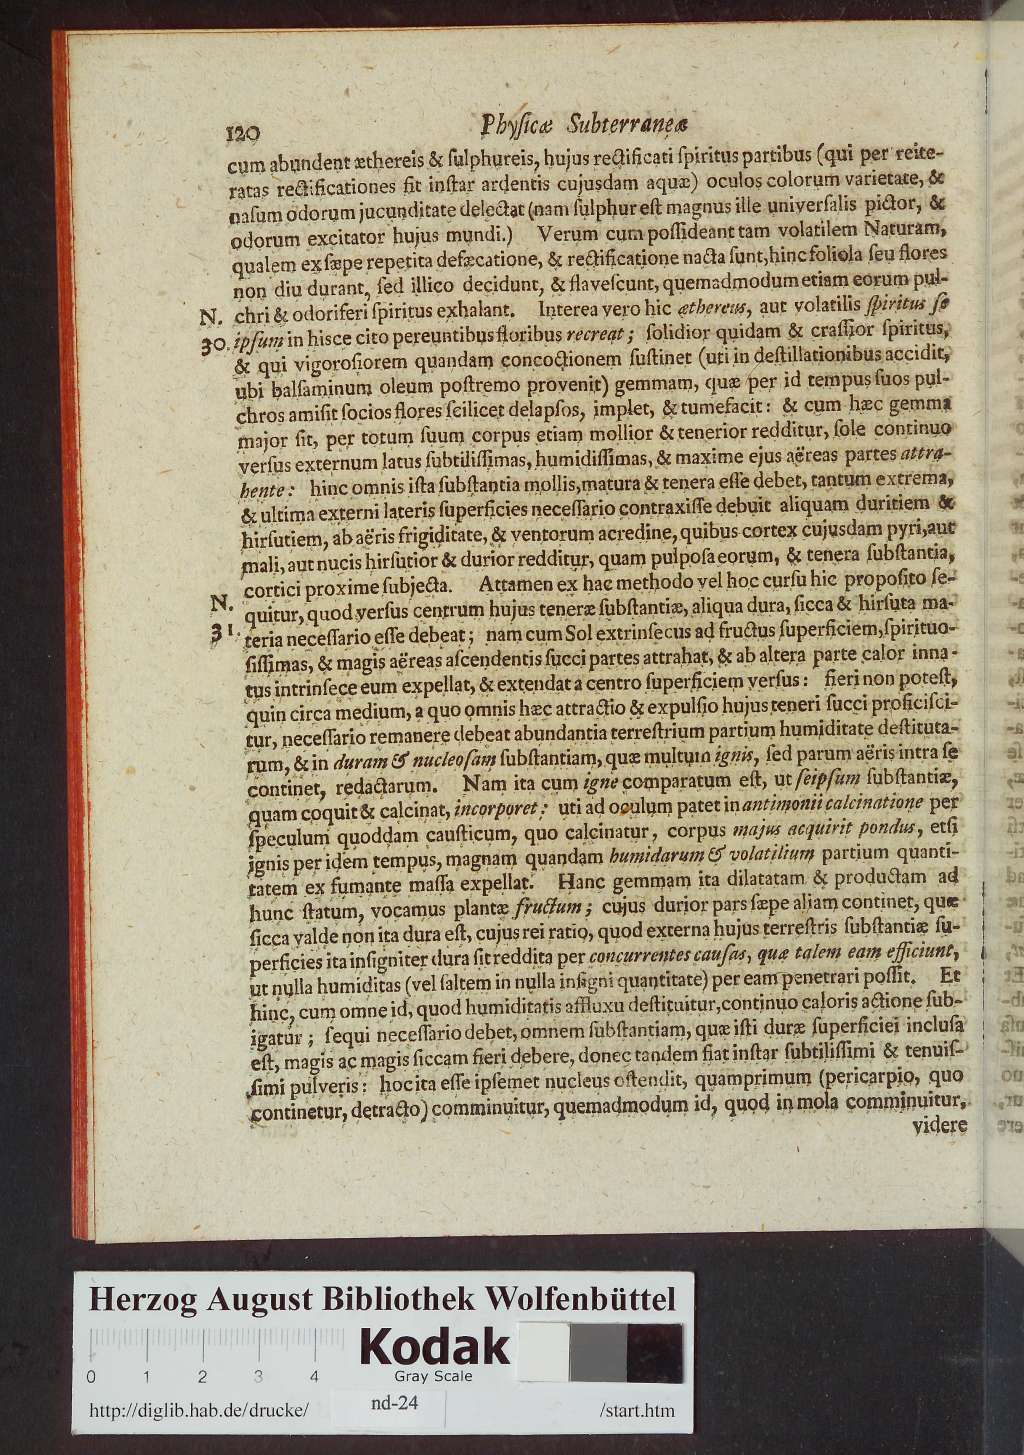 120 Physicæ Subterraneæ
cum abundent æthereis & ſulphureis, hujus rectificati ſpiritus partibus (qui per reite-
ratas rectificationes fit inſtar ardentis cujusdam aquæ) oculos colorum varietate, &
naſum odorum jucunditate delectat (nam ſulphur eſt magnus ille univerſalis pictor, &
odorum excitator hujus mundi.) Verum cum poſſideant tam volatilem Naturam,
qualem ex ſæpe repetita defæcatione, & rectificatione nacta ſunt, hinc foliola ſeu flores
non diu durant, ſed illico decidunt, & flaveſcunt, quemadmodum etiam eorum pul-
N. chri & odoriferi ſpiritus exhalant. Interea vero hic æthereus, aut volatilis ſpiritus ſe
30. ipſum in hisce cito pereuntibus floribus recreat; ſolidior quidam & craſſior ſpiritus,
& qui vigoroſiorem quandam concoctionem ſuſtinet (uti in deſtillationibus accidit,
ubi balſaminum oleum poſtremo provenit) gemmam, quæ per id tempus ſuos pul-
chros amiſit ſocios flores ſcilicet delapſos, implet, & tumefacit: & cum hæc gemma
major fit, per totum ſuum corpus etiam mollior & tenerior redditur, ſole continuo
verſus externum latus ſubtiliſſimas, humidiſſimas, & maxime ejus aëreas partes attra-
hente: hinc omnis iſta ſubſtantia mollis, matura & tenera eſſe debet, tantum extrema,
& ultima externi lateris ſuperficies neceſſario contraxiſſe debuit aliquam duritiem &
hirſutiem, ab aëris frigiditate, & ventorum acredine, quibus cortex cujusdam pyri, aut
mali, aut nucis hirſutior & durior redditur, quam pulpoſa eorum, & tenera ſubſtantia,
cortici proxime ſubjecta. Attamen ex hac methodo vel hoc curſu hic propoſito ſe-
N. quitur, quod verſus centrum hujus teneræ ſubſtantiæ, aliqua dura, ſicca & hirſuta ma-
31. teria neceſſario eſſe debeat; nam cum Sol extrinſecus ad fructus ſuperficiem, ſpirituo-
ſiſſimas, & magis aëreas aſcendentis ſucci partes attrahat, & ab altera parte calor inna-
tus intrinſece eum expellat, & extendat a centro ſuperficiem verſus: fieri non poteſt,
quin circa medium, a quo omnis hæc attractio & expulſio hujus teneri ſucci proficiſci-
tur, neceſſario remanere debeat abundantia terreſtrium partium humiditate deſtituta-
rum, & in duram & nucleoſam ſubſtantiam, quæ multum ignis, ſed parum aëris intra ſe
continet, redactarum. Nam ita cum igne comparatum eſt, ut ſeipſum ſubſtantiæ,
quam coquit & calcinat, incorporet: uti ad oculum patet in antimonii calcinatione per
ſpeculum quoddam cauſticum, quo calcinatur, corpus majus acquirit pondus, etſi
ignis per idem tempus, magnam quandam humidarum & volatilium partium quanti-
tatem ex fumante maſſa expellat. Hanc gemmam ita dilatatam & productam ad
hunc ſtatum, vocamus plantæ fructum; cujus durior pars ſæpe aliam continet, quæ
ſicca valde non ita dura eſt, cujus rei ratio, quod externa hujus terreſtris ſubſtantiæ ſu-
perficies ita inſigniter dura ſit reddita per concurrentes cauſas, quæ talem eam efficiunt,
ut nulla humiditas (vel ſaltem in nulla inſigni quantitate) per eam penetrari poſſit. Et
hinc, cum omne id, quod humiditatis affluxu deſtituitur, continuo caloris actione ſub-
igatur; ſequi neceſſario debet, omnem ſubſtantiam, quæ iſti duræ ſuperficiei incluſa
eſt, magis ac magis ſiccam fieri debere, donec tandem fiat inſtar ſubtiliſſimi & tenuiſ-
ſimi pulveris: hoc ita eſſe ipſemet nucleus oſtendit, quamprimum (pericarpio, quo
continetur, detracto) comminuitur, quemadmodum id, quod in mola comminuitur,
videre
Herzog August Bibliothek Wolfenbüttel
Kodak
0 1 2 3 4 Gray Scale
http://diglib.hab.de/drucke/ nd-24 /start.htm